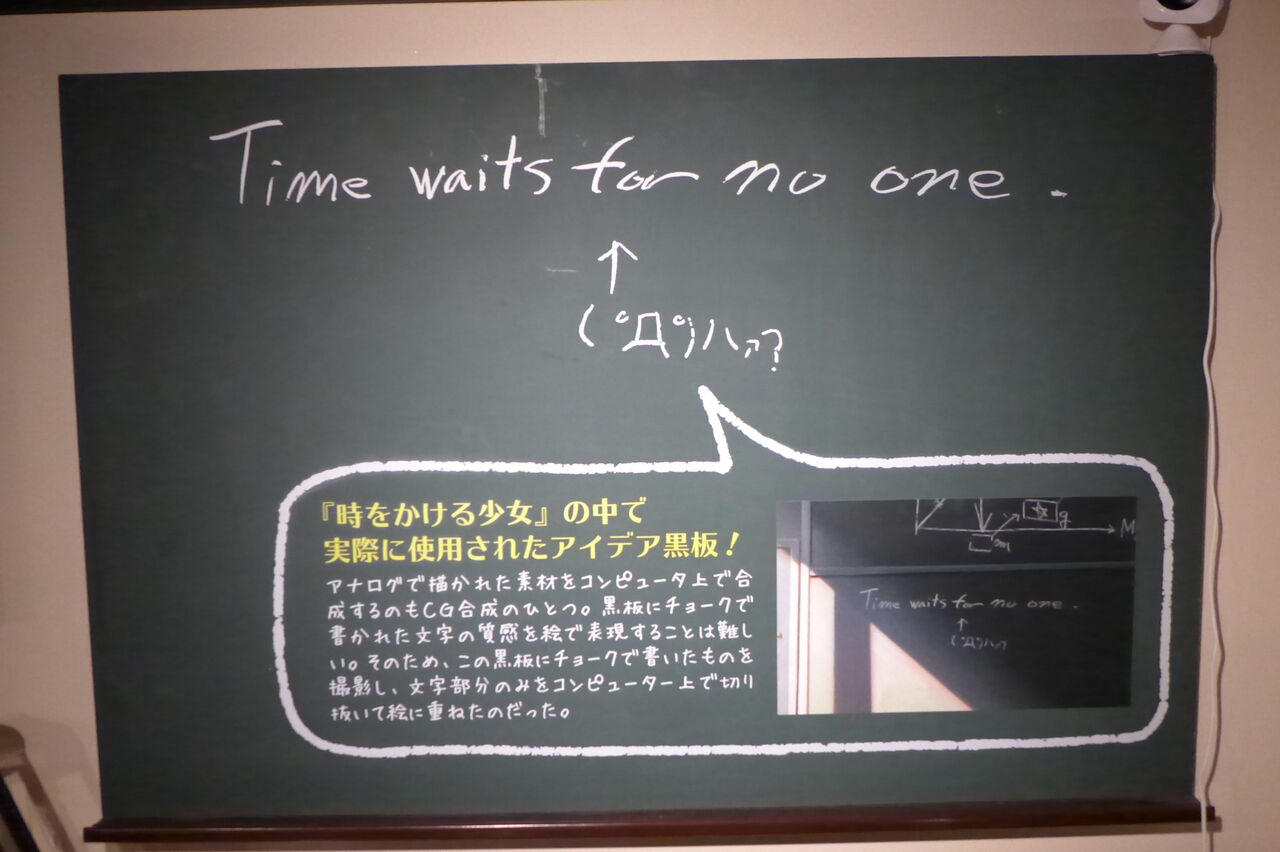 Time waits for no one.
↑
( ﾟДﾟ)ハァ?
『時をかける少女』の中で
実際に使用されたアイデア黒板！
アナログで描かれた素材をコンピュータ上で合
成するのもCG合成のひとつ。黒板にチョークで
書かれた文字の質感を絵で表現することは難し
い。そのため、この黒板にチョークで書いたものを
撮影し、文字部分のみをコンピューター上で切り
抜いて絵に重ねたのだった。
g
M
m
Time waits for no one.
↑
( ﾟДﾟ)ハァ?